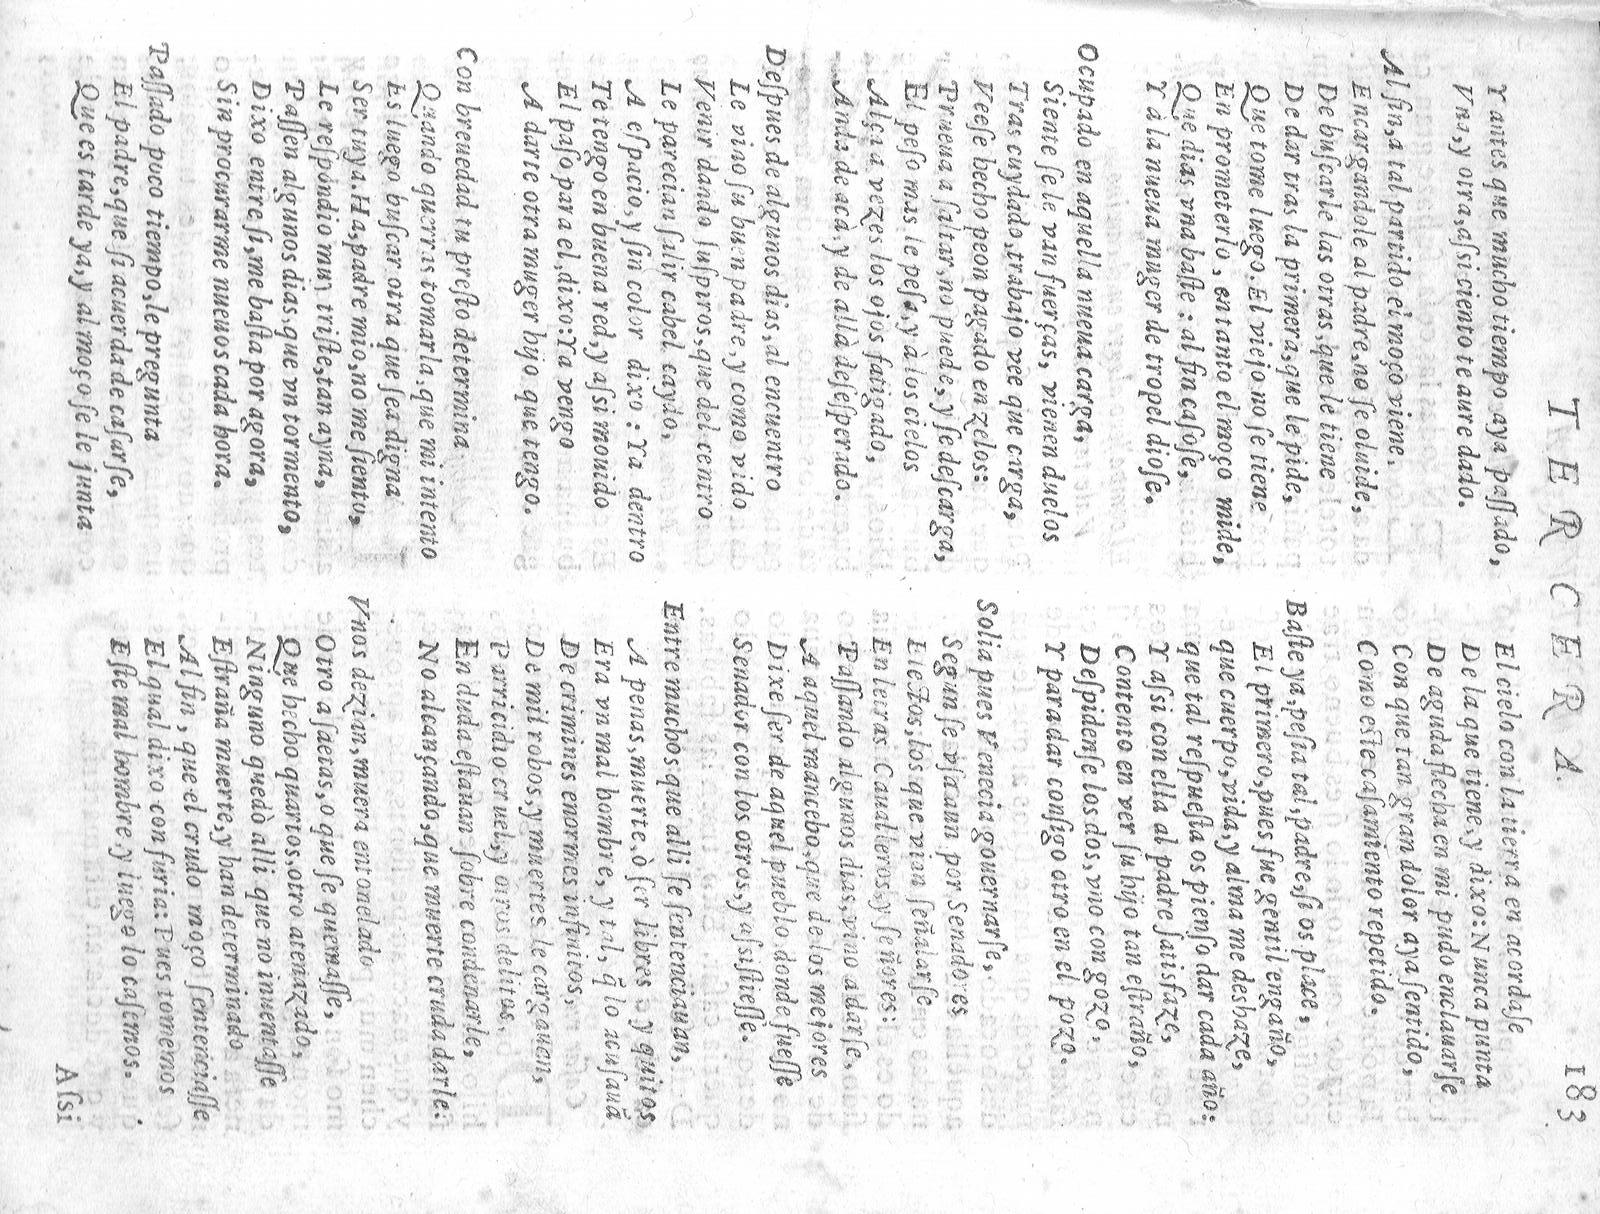 TERCERA. 183
Y antes que mucho tiempo aya paſſado,
Vna, y otra, aſsi ciento te aure dado.
Al fin, a tal partido el moço viene.
Encargandole al padre, no ſe oluide,
De buſcarle las otras, que le tiene
De dar tras la primera, que le pide,
Que tome luego. El viejo no ſe tiene
En prometerlo, entanto el moço mide,
Que dias vna baſte: al fin caſoſe,
Y a la nueua muger de tropel dioſe.
Ocupado en aquella nueua carga,
Siente ſe le van fuerças, vienen duelos
Tras cuydado, trabajo vee que carga,
Veeſe hecho peon pagado en zelos:
Prueua a ſaltar, no puede, y ſe deſcarga,
El peſo mas le peſa, y à los cielos
Alça a vezes los ojos fatigado,
Anda de acà, y de allà deſeſperado.
Deſpues de algunos dias, al encuentro
Le vino ſu buen padre, y como vido
Venir dando ſuſpiros, que del centro
Le parecian ſalir cabel caydo,
A eſpacio, y ſin color dixo: Ya dentro
Te tengo en buena red, y aſsi mouido
El paſo para el, dixo: Ya vengo
A darte otra muger hijo que tengo.
Con breuedad tu preſto determina
Quando querras tomarla, que mi intento
Es luego buſcar otra que ſea digna
Ser tuya. Ha, padre mio, no me ſiento,
Le reſpondio muy triſte, tan ayna,
Paſſen algunos dias, que vn tormento,
Dixo entre ſi, me baſta por agora,
Sin procurarme nueuos cada hora.
Paſſado poco tiempo, le pregunta
El padre, que ſi acuerda de caſarſe,
Que es tarde ya, y al moço ſe le junta
El cielo con la tierra en acordaſe
De la que tiene, y dixo: Nunca punta
De aguda flecha en mi pudo enclauarſe
Con que tan gran dolor aya ſentido,
Como eſte caſamiento repetido.
Baſte ya, peſia tal, padre, ſi os place,
El primero, pues fue gentil engaño,
que cuerpo, vida, y alma me deshaze,
que tal reſpueſta os pienſo dar cada año:
Y aſsi con ella al padre ſatisfaze,
Contento en ver ſu hijo tan eſtraño,
Deſpidenſe los dos, vno con gozo,
Y para dar conſigo otro en el pozo.
Solia pues Venecia gouernarſe,
Segun ſe vſa aun por Senadores
Electos, los que vian ſeñalarſe
En letras Caualleros, y ſeñores:
Paſſando algunos dias, vino a darſe,
A aquel mancebo, que de los mejores
Dixe ſer de aquel pueblo donde fueſſe
Senador con los otros, y aſsiſtieſſe.
Entre muchos que alli ſe ſentenciauan,
A penas, muerte, ò ſer libres y quitos
Era vn mal hombre, y tal, q̃ lo acuſauã
De crimines enormes infinitos,
De mil robos, y muertes le cargauan,
Parricidio cruel, y otros delitos,
En duda eſtauan ſobre condenarle,
No alcançando, que muerte cruda darle:
Vnos dezian, muera entonelado
Otro aſaetas, o que ſe quemaſſe,
Que hecho quartos, otro atenazado,
Ninguno quedò alli que no inuentaſſe
Eſtraña muerte, y han determinado
Al fin, que el crudo moço ſentenciaſſe
El qual dixo con furia: Pues tomemos
Eſte mal hombre, y luego lo caſemos.
Aſsi